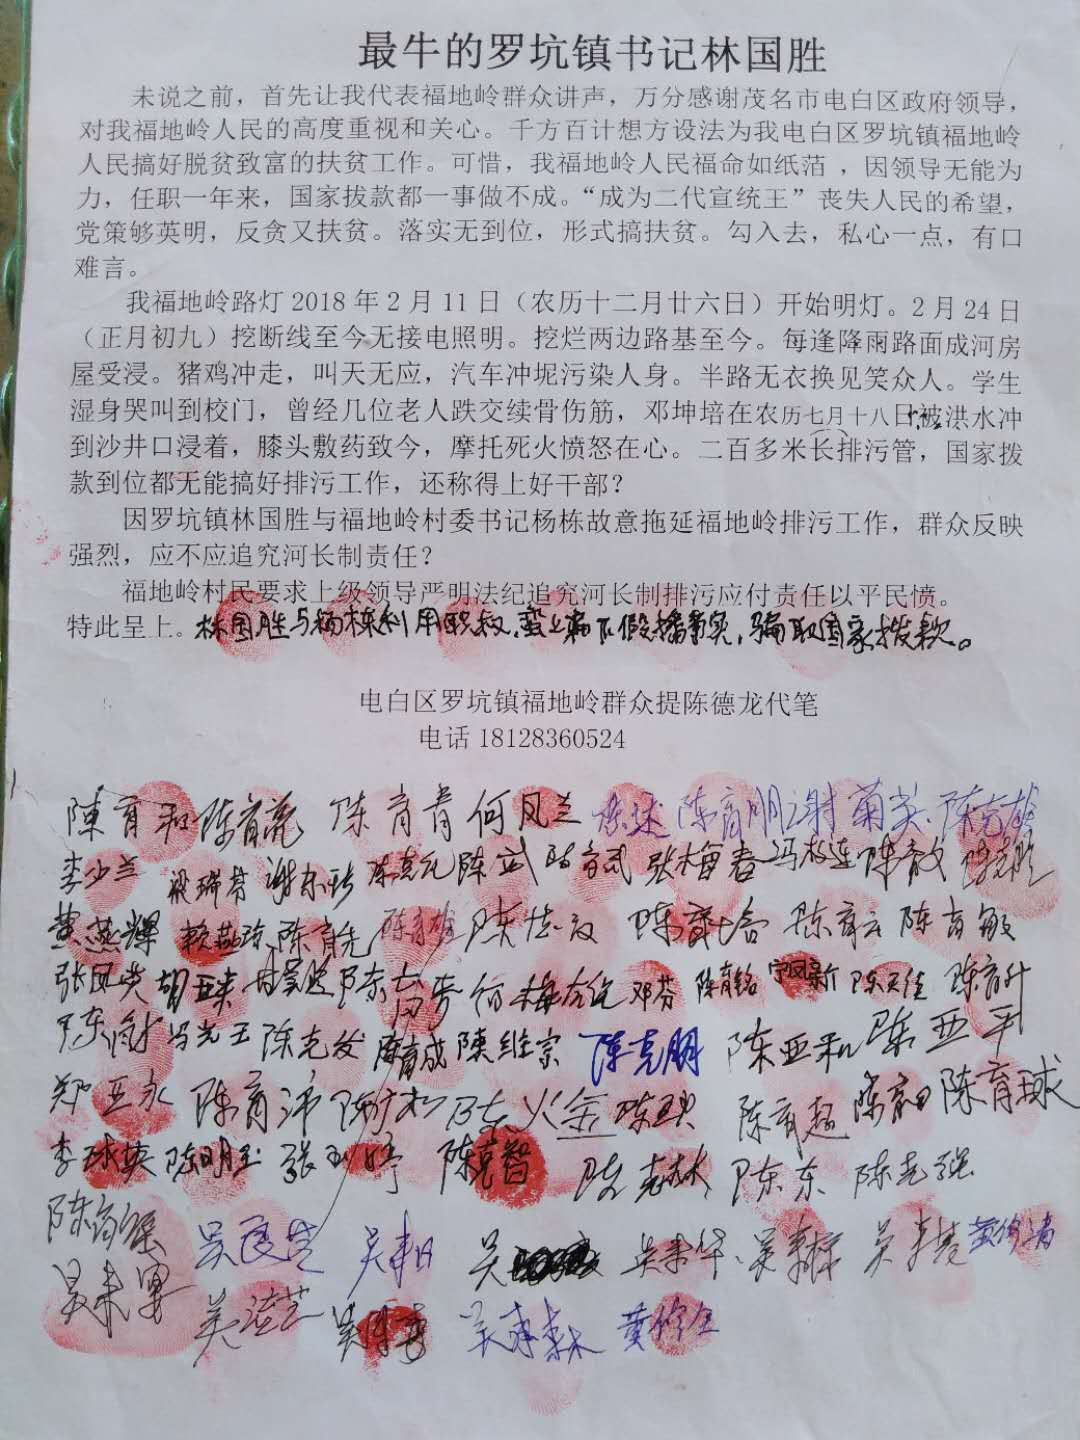 最牛的罗坑镇书记林国胜
未说之前，首先让我代表福地岭群众讲声，万分感谢茂名市电白区政府领导，
对我福地岭人民的高度重视和关心。千方百计想方设法为我电白区罗坑镇福地岭
人民搞好脱贫致富的扶贫工作。可惜，我福地岭人民福命如纸萡 ，因领导无能为
力，任职一年来，国家拨款都一事做不成。“成为二代宣统王”丧失人民的希望，
党策够英明，反贪又扶贫。落实无到位，形式搞扶贫。勾入去，私心一点，有口
难言。
我福地岭路灯 2018 年 2 月 11 日（农历十二月廿六日）开始明灯。2 月 24 日
（正月初九）挖断线至今无接电照明。挖烂两边路基至今。每逢降雨路面成河房
屋受浸。猪鸡冲走，叫天无应，汽车冲坭污染人身。半路无衣换见笑众人。学生
湿身哭叫到校门，曾经几位老人跌交续骨伤筋，邓坤培在农历七月十八日被洪水冲
到沙井口浸着，膝头敷药致今，摩托死火愤怒在心。二百多米长排污管，国家拨
款到位都无能搞好排污工作，还称得上好干部？
因罗坑镇林国胜与福地岭村委书记杨栋故意拖延福地岭排污工作，群众反映
强烈，应不应追究河长制责任？
福地岭村民要求上级领导严明法纪追究河长制排污应付责任以平民愤。
特此呈上。林国胜与杨栋利用职权，蛮上瞒下假播事实，骗取国家拨款。
电白区罗坑镇福地岭群众提陈德龙代笔
电话 18128360524
陳育和 陈育亮 陈育青 何凤兰 陈述 陈育明 谢菊英 陈克雄
李少兰 梁瑞芬 陈克凡 陈武 陈育武 张梅春 冯板连 陈育文
黄燕輝 赖燕玲 陈育先 陈育雄 陈育云 陈育敏
张凤英 胡亚来 邓芬 陈育铭 宁凤新 陈天佳 陈育升
冯光玉 陈克发 詹育成 陳维宗 陈克朋 陈亚和 陈亚平
郑亚永 陈育沛 陈火金 陈育超 陈育球
李球英 陈明玉 张玉婷 陈克智 陈志林 陈东 陈克强
吴良芝 吴来日 吴 吴来华 黄修清
吴来军 吴凌芝 吴来森 黄修全